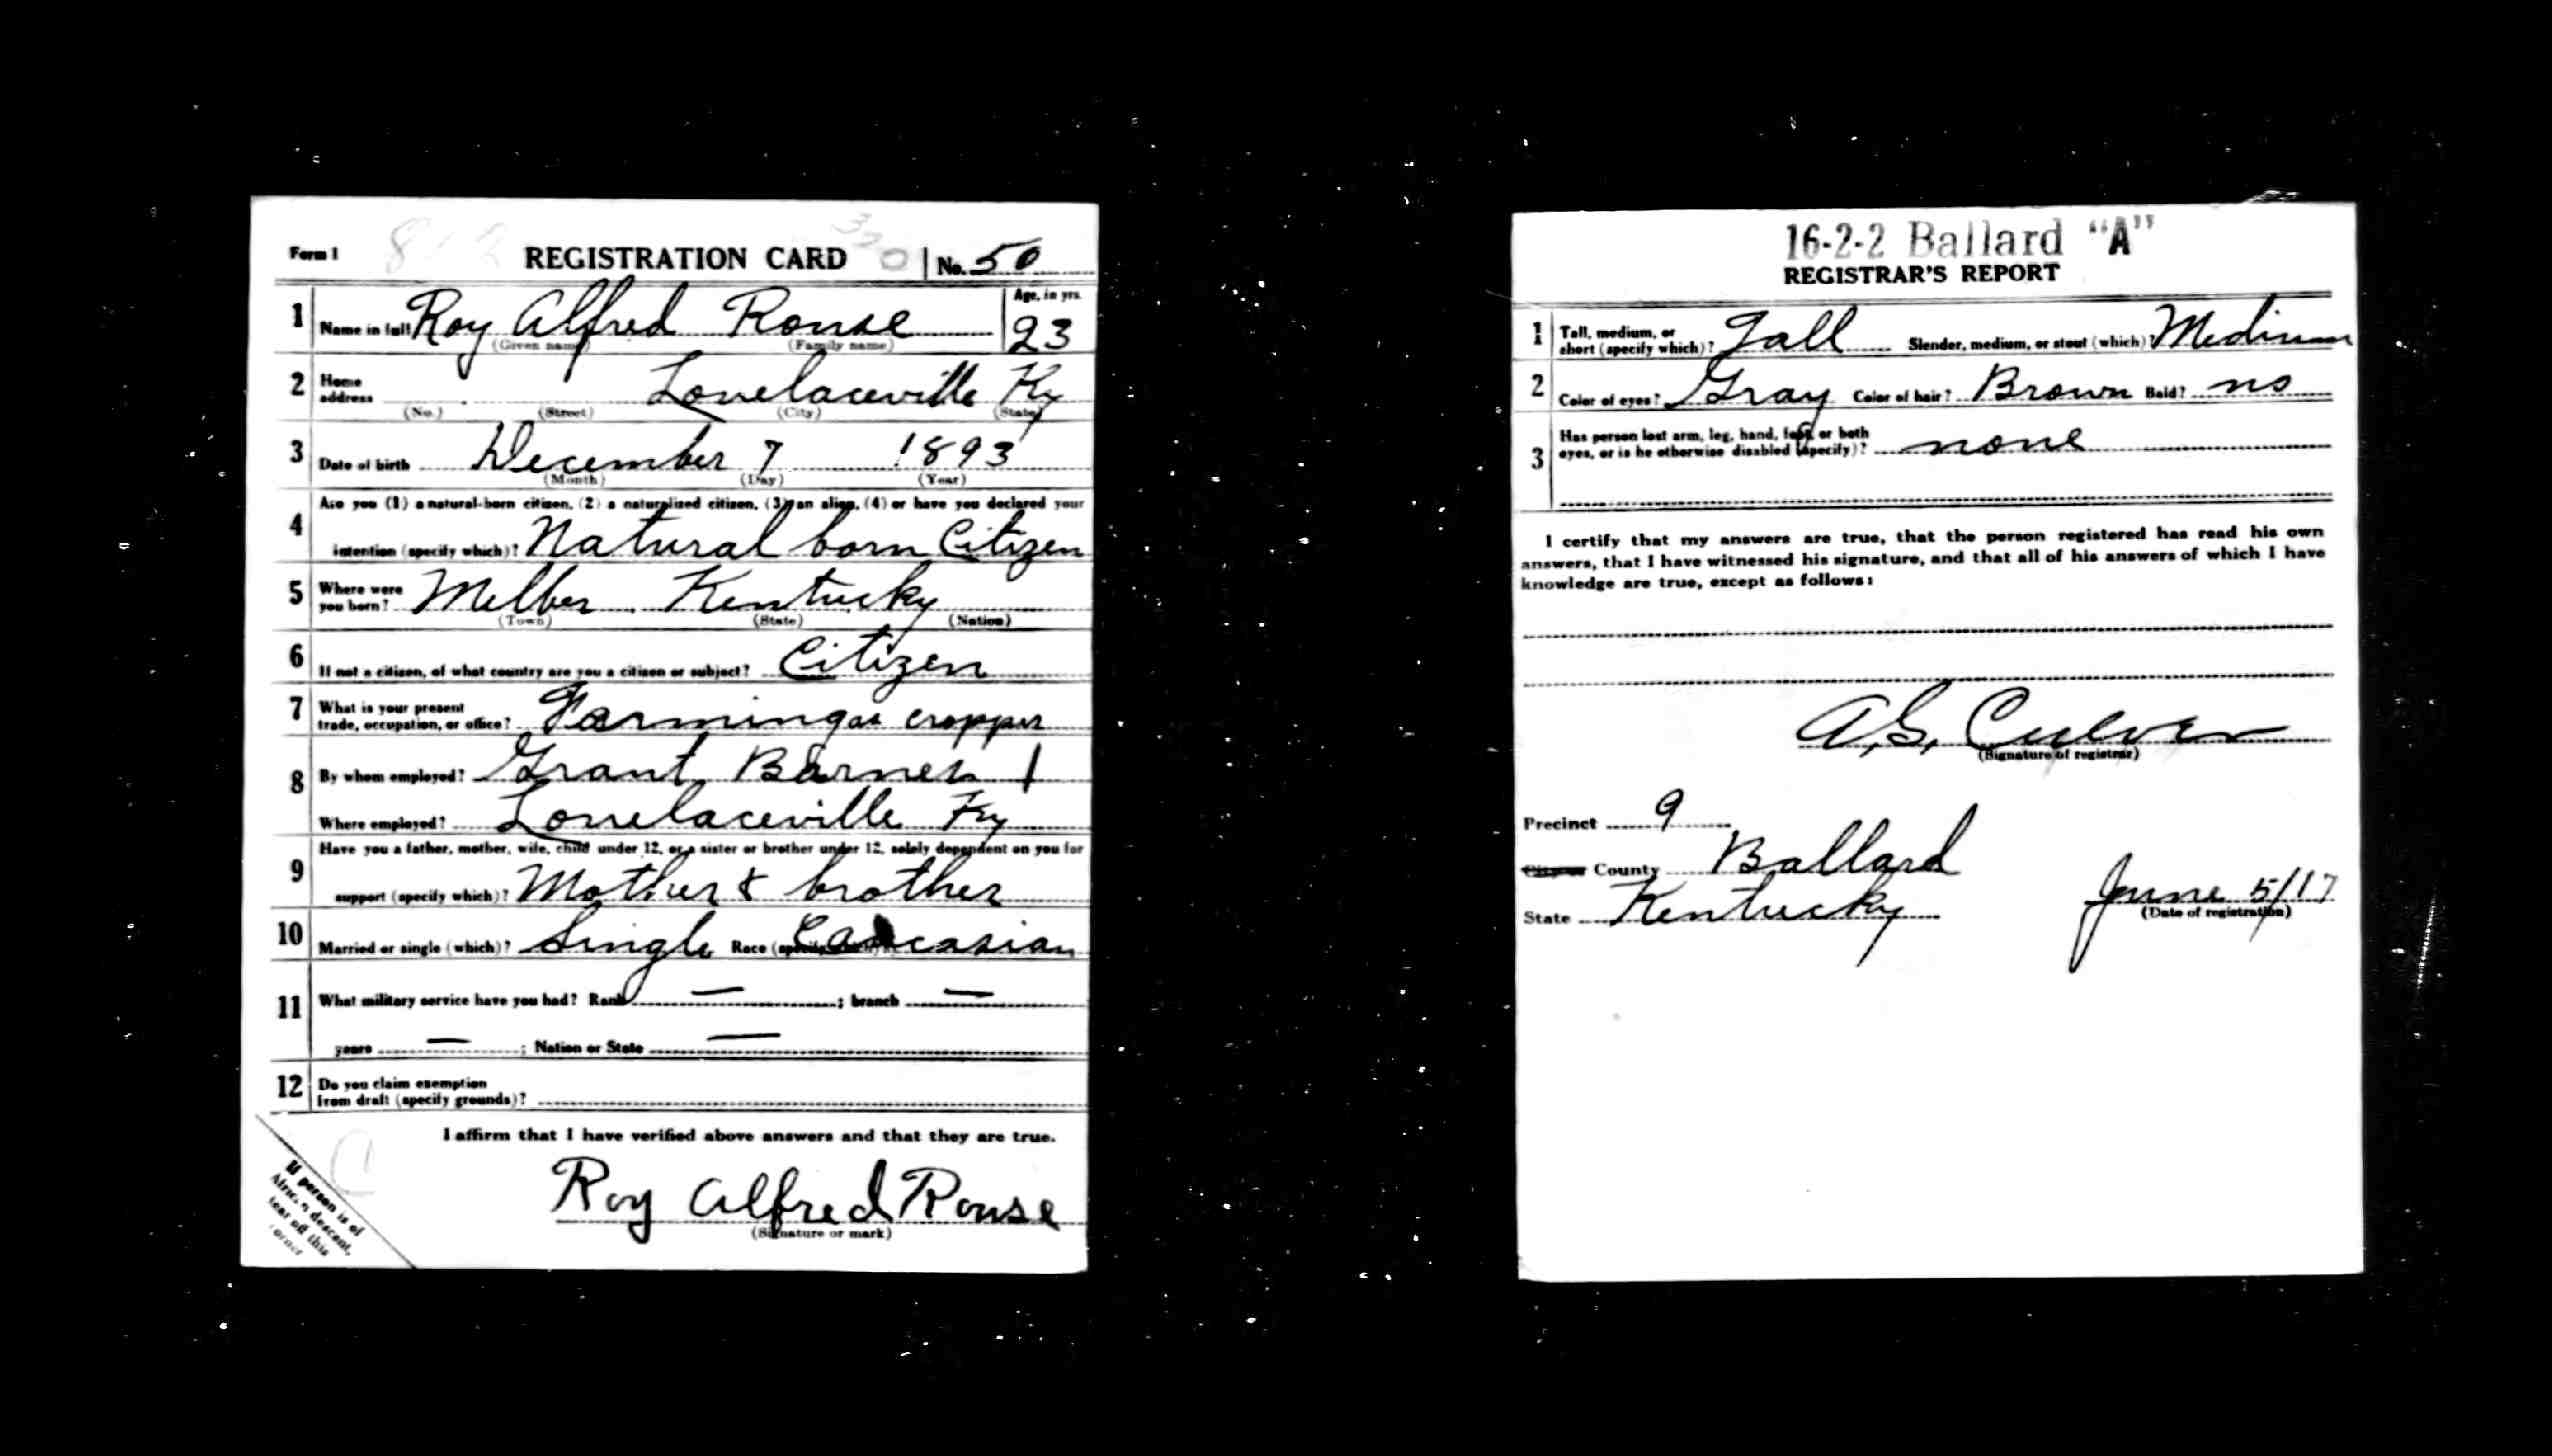 Form 1 REGISTRATION CARD No. 50
1 Name in full Roy Alfred Rouse Age, in yrs. 23
(Given name) (Family name)
2 Home address Lovelaceville Ky
(No.) (Street) (City) (State)
3 Date of birth December 7 1893
(Month) (Day) (Year)
4 Are you (1) a natural-born citizen, (2) a naturalized citizen, (3) an alien, (4) or have you declared your
intention (specify which)? Natural born Citizen
5 Where were you born? Melber Kentucky
(Town) (State) (Nation)
6 If not a citizen, of what country are you a citizen or subject? Citizen
7 What is your present
trade, occupation, or office? Farming as cropper
8 By whom employed? Grant Barnes 1
Where employed? Lovelaceville Ky
9 Have you a father, mother, wife, child under 12, or a sister or brother under 12, solely dependent on you for
support (specify which)? Mother & brother
10 Married or single (which)? Single Race (specify which)? Caucasian
11 What military service have you had? Rank — ; branch —
years — ; Nation or State —
12 Do you claim exemption
from draft (specify grounds)?
I affirm that I have verified above answers and that they are true.
Roy Alfred Rouse
(Signature or mark)
If person is of
African descent,
tear off this
corner
16-2-2 Ballard "A"
REGISTRAR'S REPORT
1 Tall, medium, or
short (specify which)? Tall Slender, medium, or stout (which)? Medium
2 Color of eyes? Gray Color of hair? Brown Bald? no
3 Has person lost arm, leg, hand, foot, or both
eyes, or is he otherwise disabled (specify)? none
I certify that my answers are true, that the person registered has read his own
answers, that I have witnessed his signature, and that all of his answers of which I have
knowledge are true, except as follows:
A. G. Culver
(Signature of registrar)
Precinct 9
City or County Ballard
State Kentucky June 5/17
(Date of registration)